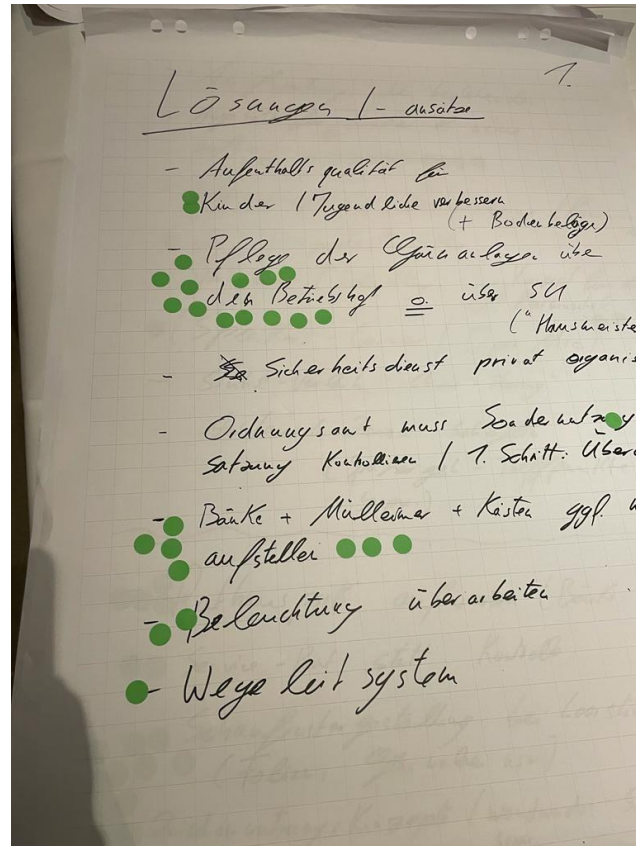 1.
Lösungen / -ansätze
- Aufenthaltsqualität für
Kinder / Jugendliche verbessern
(+ Bodenbeläge)
- Pflege der Grünanlagen übe
den Betriebshof o. über SU
("Hausmeiste
- Sicherheitsdienst privat organis
- Ordnungsamt muss Sondernutzung
satzung Kontrollieren / 1. Schritt: Über
- Bänke + Mülleimer + Kästen ggf.
aufstellen
- Beleuchtung überarbeiten
- Wegeleitsystem